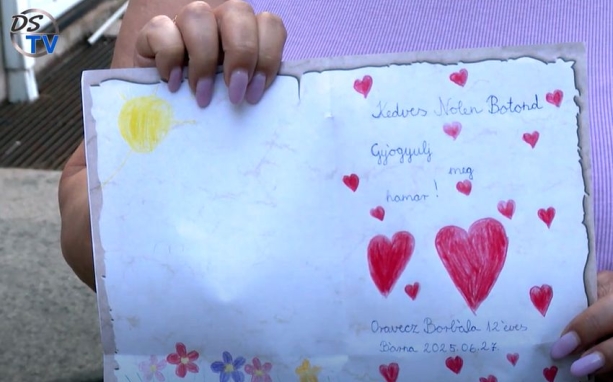 DS
TV
Kedves Nolen Botond
Gyógyulj
meg
hamar!
Oravecz Borbála 12 éves
Bárna 2025.06.27.